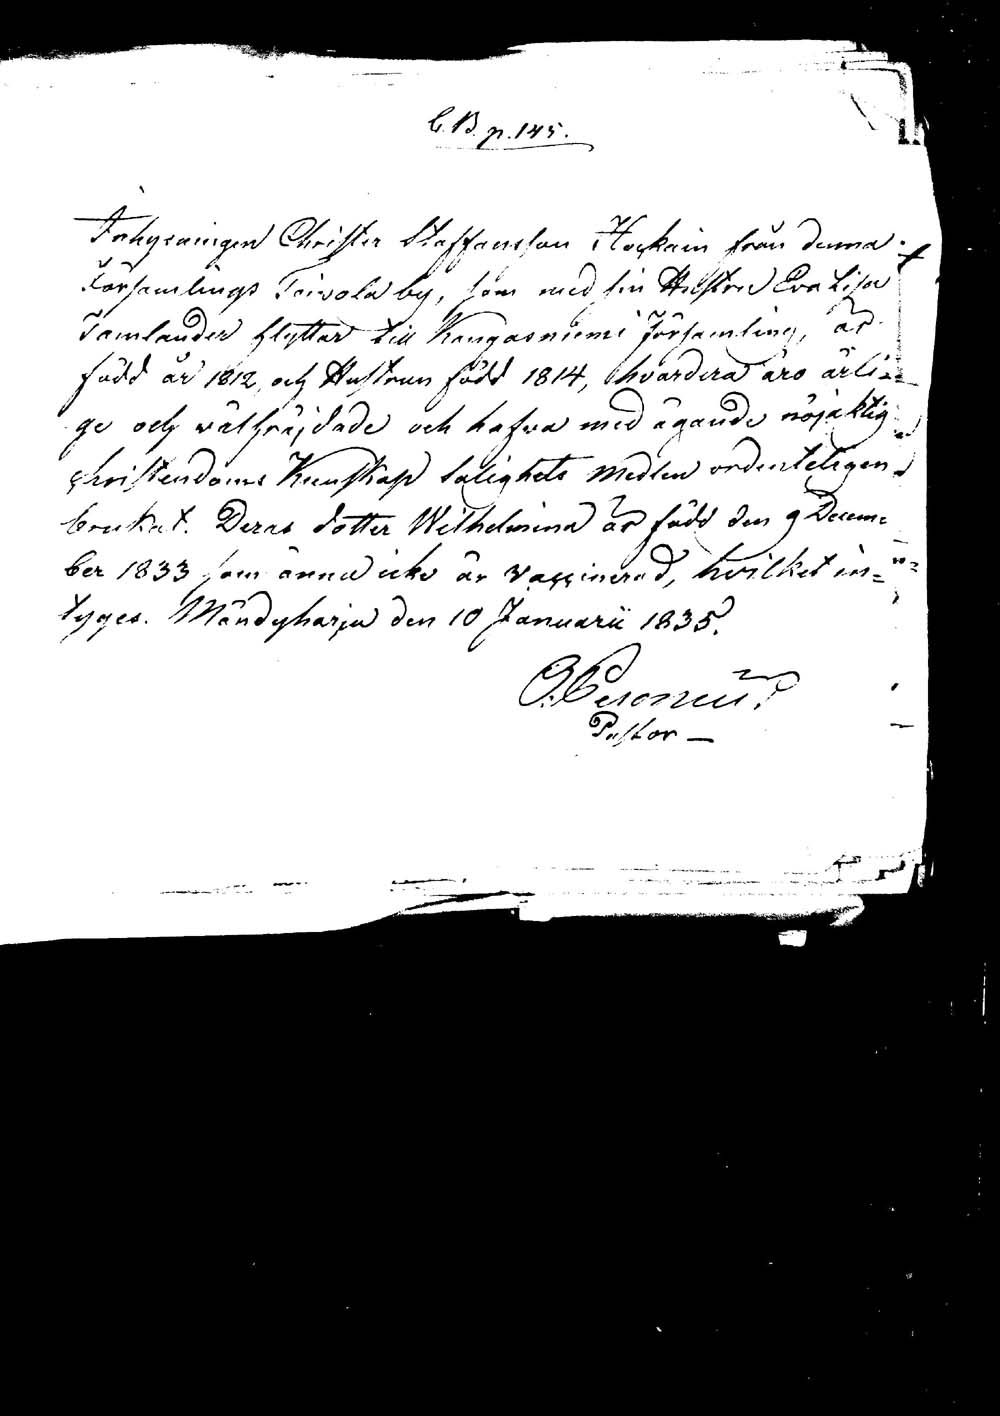 C.B. p. 145.
Inhysningen Christer Staffansson Hockain från denna
Församlings Toivola by, som med sin Hustru Eva Lisa
Tamlander flyttar till Kangasniemi Församling, är
född år 1812, och Hustrun född 1814, hvardera äro ärli-
ge och välfräjdade och hafva med ägande nöjaktig
christendoms Kunskap salighets medlen ordenteligen
brukat. Deras dotter Wilhelmina är född den 9 Decem-
ber 1833 som ännu icke är vaccinerad, hvilket in-
tyges. Mändyharju den 10 Januarii 1835.
Pastor